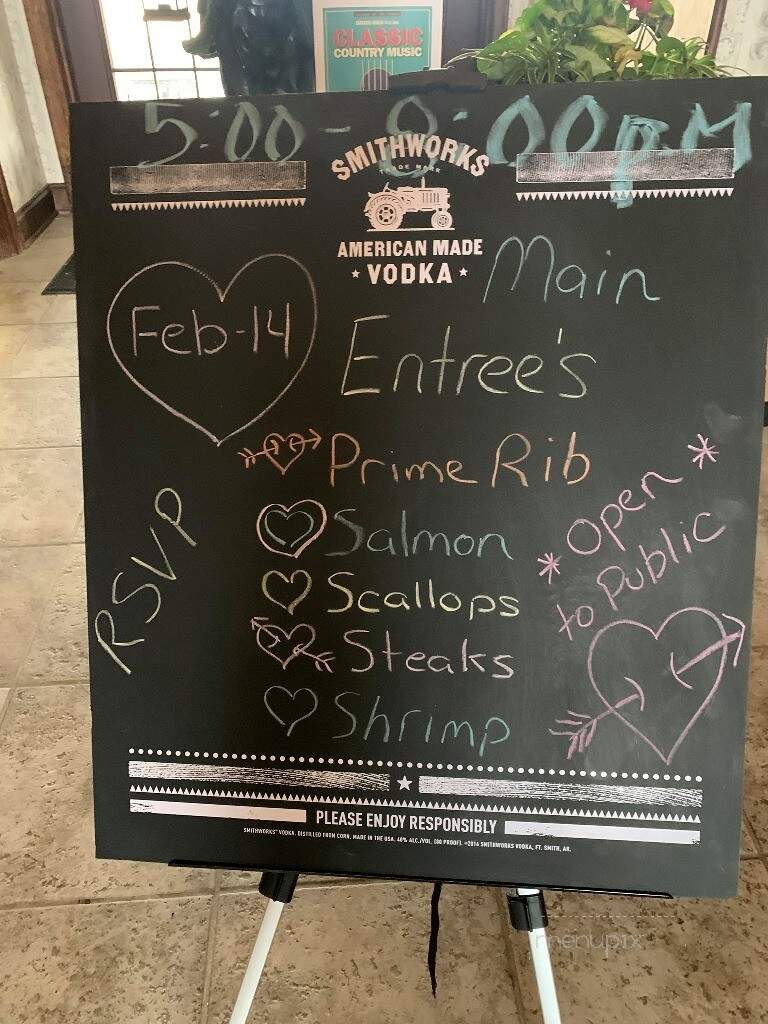 CLASSIC
COUNTRY MUSIC
5:00 - :00pm
SMITHWORKS
AMERICAN MADE
VODKA
Main
Feb-14
Entree's
Prime Rib
Salmon
Scallops
Steaks
Shrimp
RSVP
* Open *
to Public
PLEASE ENJOY RESPONSIBLY
SMITHWORKS® VODKA. DISTILLED FROM CORN. MADE IN THE USA. 40% ALC./VOL. (80 PROOF). ©2016 SMITHWORKS VODKA, FT. SMITH, AR.
menupix